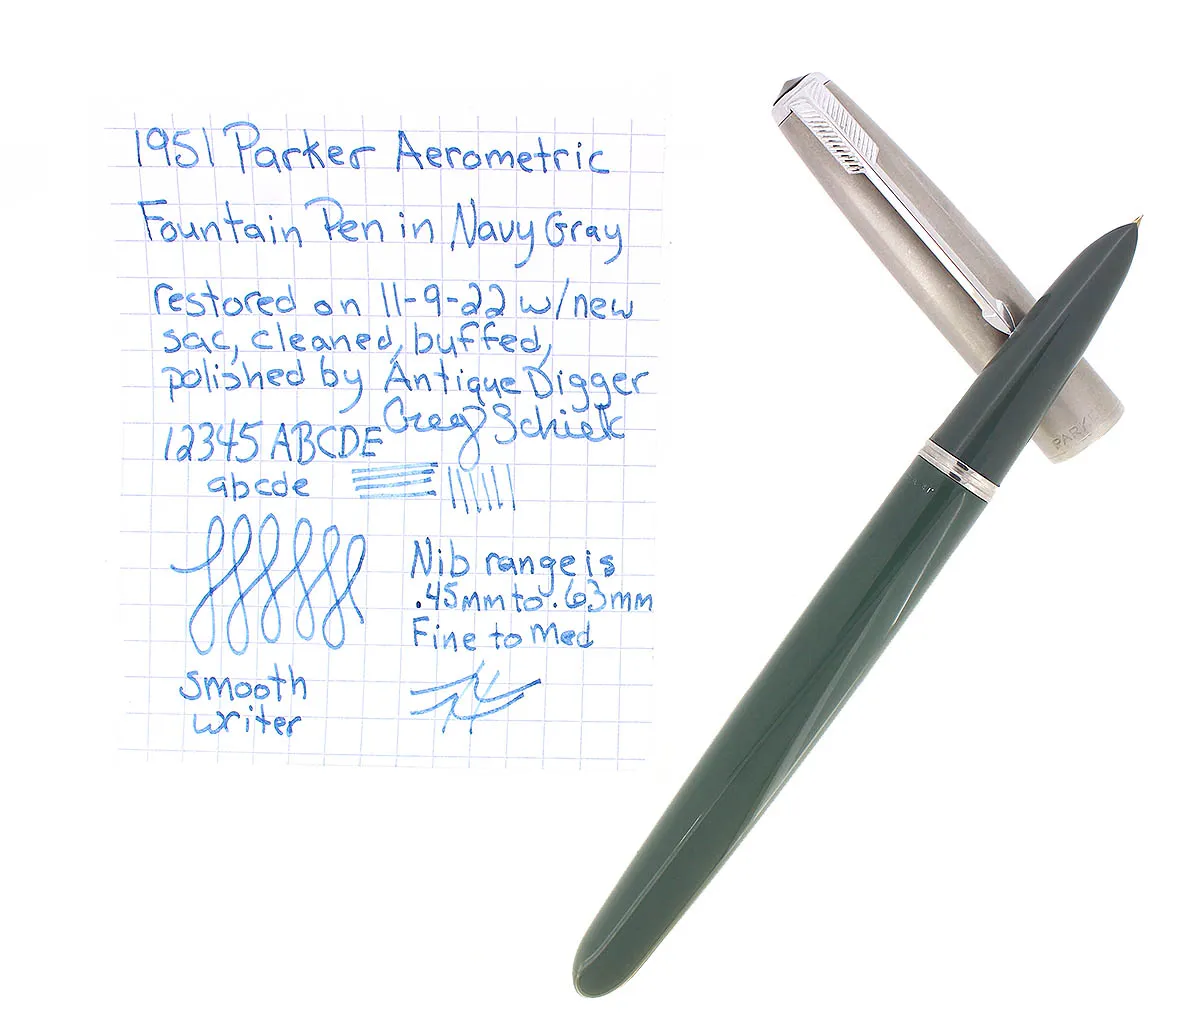 1951 Parker Aerometric
Fountain Pen in Navy Gray
restored on 11-9-22 w/new
sac, cleaned, buffed,
polished by Antique Digger
Greg Schiek
12345 ABCDE
abcde
Nib range is
.45mm to .63mm
Fine to Med
smooth
writer
PARK